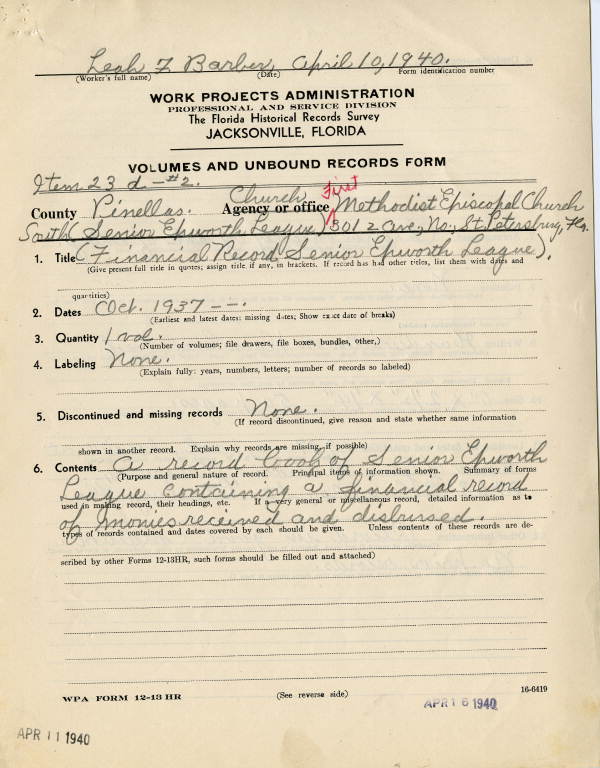 Leah F. Barber, April 10, 1940.
(Worker's full name) (Date) Form identification number
WORK PROJECTS ADMINISTRATION
PROFESSIONAL AND SERVICE DIVISION
The Florida Historical Records Survey
JACKSONVILLE, FLORIDA
VOLUMES AND UNBOUND RECORDS FORM
Item 23 d - #2.
Church First
County Pinellas. Agency or office Methodist Episcopal Church
South (Senior Epworth League) 301 2 ave, No., St. Petersburg, Fla.
1. Title (Financial Record Senior Epworth League).
(Give present full title in quotes; assign title if any, in brackets. If record has had other titles, list them with dates and
quantities)
2. Dates Oct. 1937 --.
(Earliest and latest dates: missing dates; Show exact date of breaks)
3. Quantity 1 vol.
(Number of volumes; file drawers, file boxes, bundles, other,)
4. Labeling None.
(Explain fully: years, numbers, letters; number of records so labeled)
5. Discontinued and missing records None.
(If record discontinued, give reason and state whether same information
shown in another record. Explain why records are missing, if possible)
6. Contents A record book of Senior Epworth
(Purpose and general nature of record. Principal items of information shown. Summary of forms
League containing a financial record
used in making record, their headings, etc. If a very general or miscellaneous record, detailed information as to
of monies received and disbursed.
types of records contained and dates covered by each should be given. Unless contents of these records are de-
scribed by other Forms 12-13HR, such forms should be filled out and attached)
WPA FORM 12-13 HR (See reverse side) 16-6419
APR 16 1940
APR 11 1940